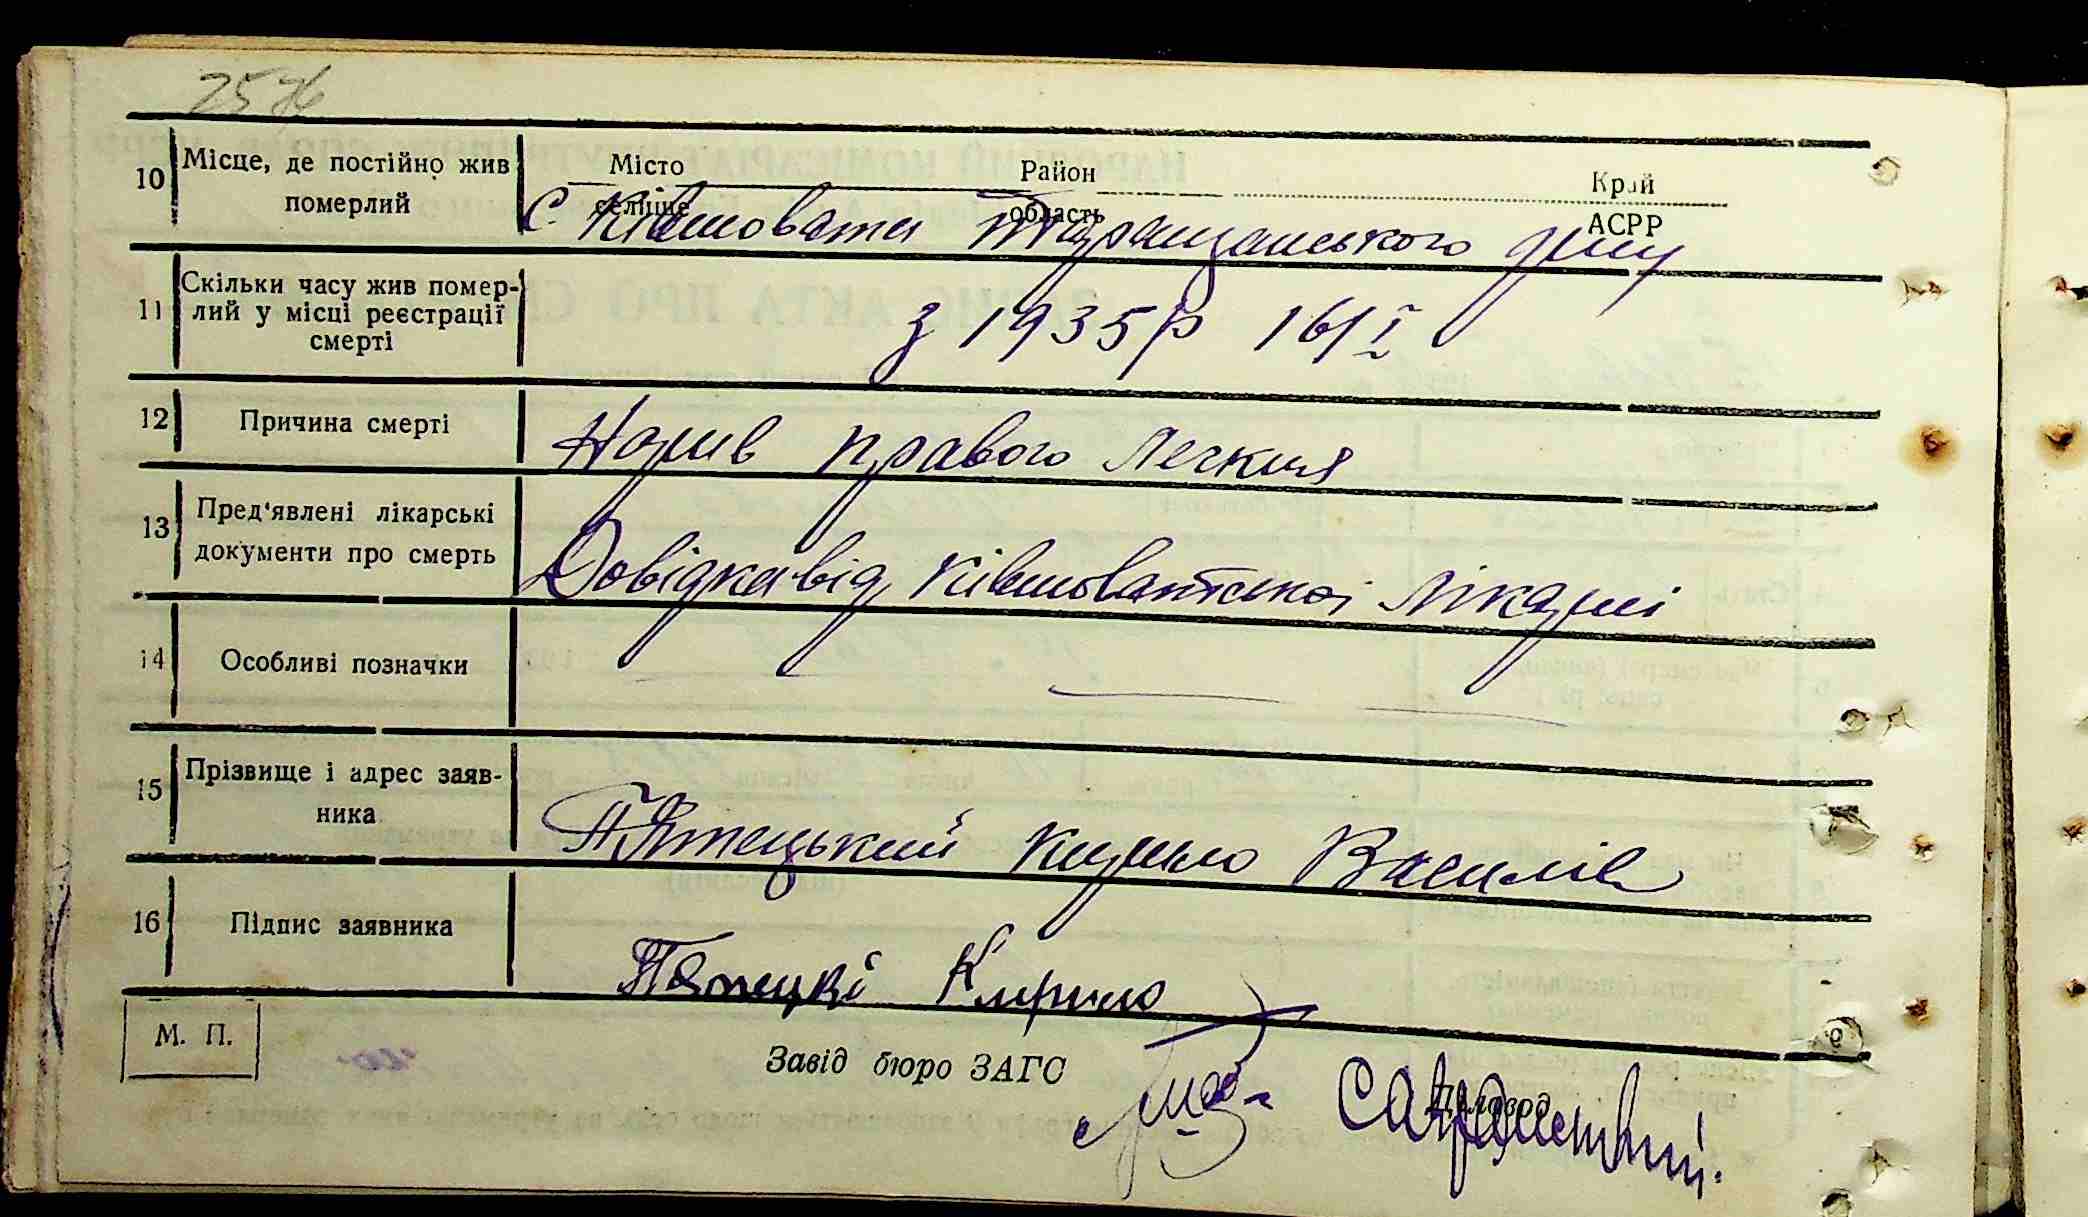 2576
10 Місце, де постійно жив померлий
Місто селище Район область Край АСРР
С. Ківшовата Таращанського р-ну
11 Скільки часу жив помер-
лий у місці реєстрації
смерті
з 1935 р 16/I
12 Причина смерті
Нарив правого легкия
13 Пред'явлені лікарські
документи про смерть
Довідка від Ківшоватської лікарні
14 Особливі позначки
15 Прізвище і адрес заяв-
ника
П'ятецький Кирило Василів
16 Підпис заявника
Пятецкі Кирило
М. П.
Завід бюро ЗАГС
Діловод